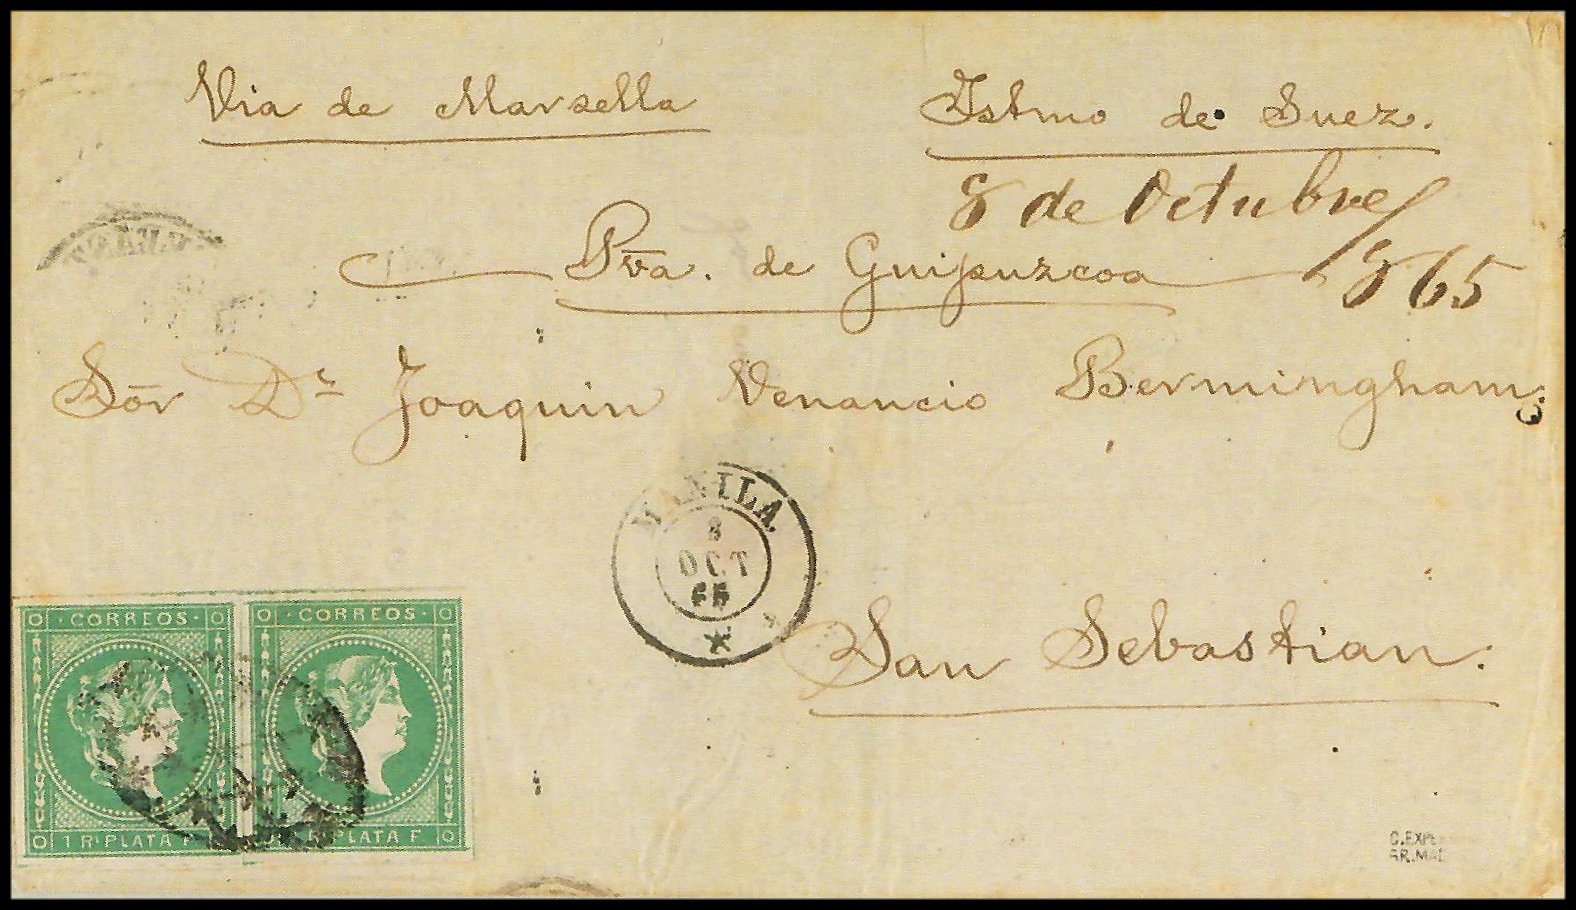 Via de Marsella
Istmo de Suez.
8 de Octubre/865
Pva. de Guipuzcoa
Sor Dn Joaquin Venancio Bermingham.
MANILA.
8
OCT
65
San Sebastian.
CORREOS
1 Rl PLATA F
CORREOS
Rl PLATA F.